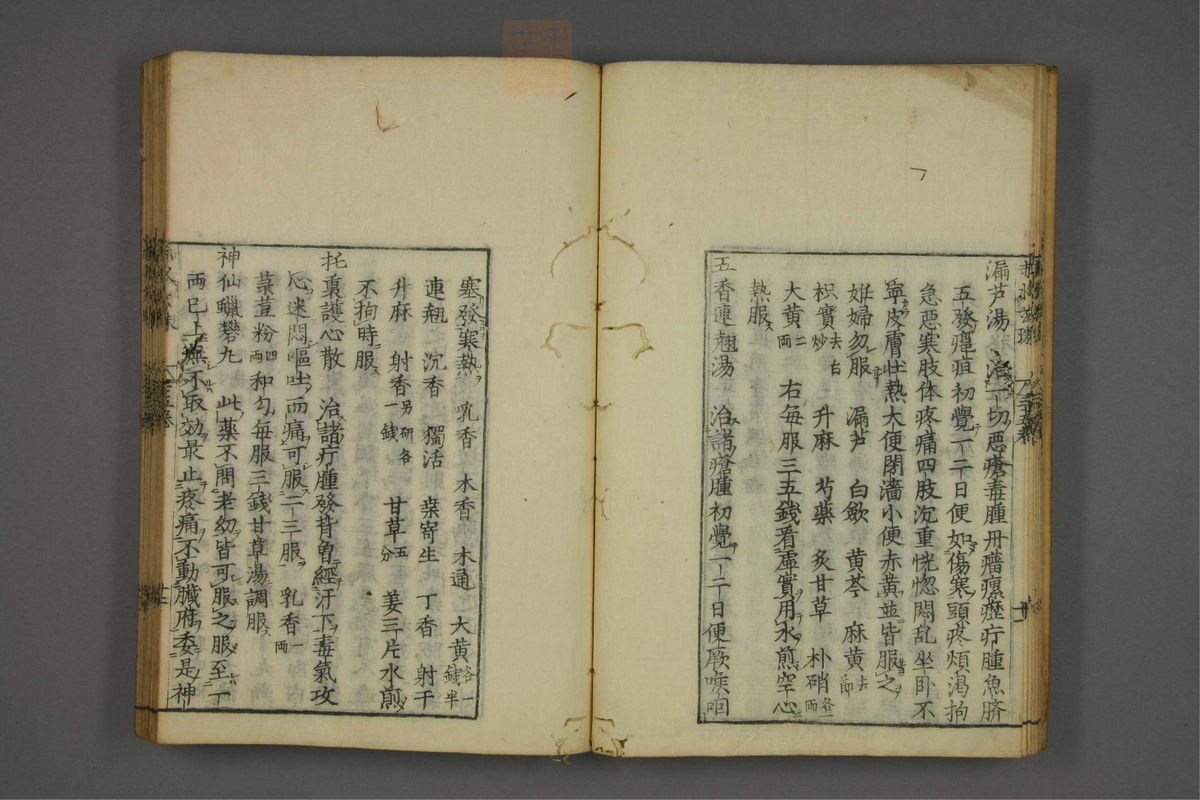 漏芦湯 治一切悪瘡毒腫丹瘤瘰癧疔腫魚臍
五發癰疽初覺一二日便如傷寒頭疼煩渇拘
急悪寒肢体疼痛四肢沉重恍惚悶乱坐卧不
寧皮膚壮熱大便閉濇小便赤黄並皆服之
妊婦勿服 漏芦 白斂 黄芩 麻黄去節
枳實去白炒 升麻 芍藥 炙甘草 朴硝各一両
大黄二両 右毎服三五錢看虚實用水煎空心
熱服
五香連翹湯 治諸瘡腫初覺一二日便厥喉咽
塞發寒熱 乳香 木香 木通 大黄各一錢半
連翹 沉香 獨活 桒寄生 丁香 射干
升麻 射香另研各一錢 甘草五分 姜三片水煎
不拘時服
托裏護心散 治諸疔腫發背曾經汗下毒氣攻
心迷悶嘔吐而痛可服二三服 乳香一両
菉荳粉四両 和匀毎服三錢甘草湯調服
神仙蠟礬丸 此藥不問老幼皆可服之服至一
両已上無不取効最止疼痛不動臓府委是神